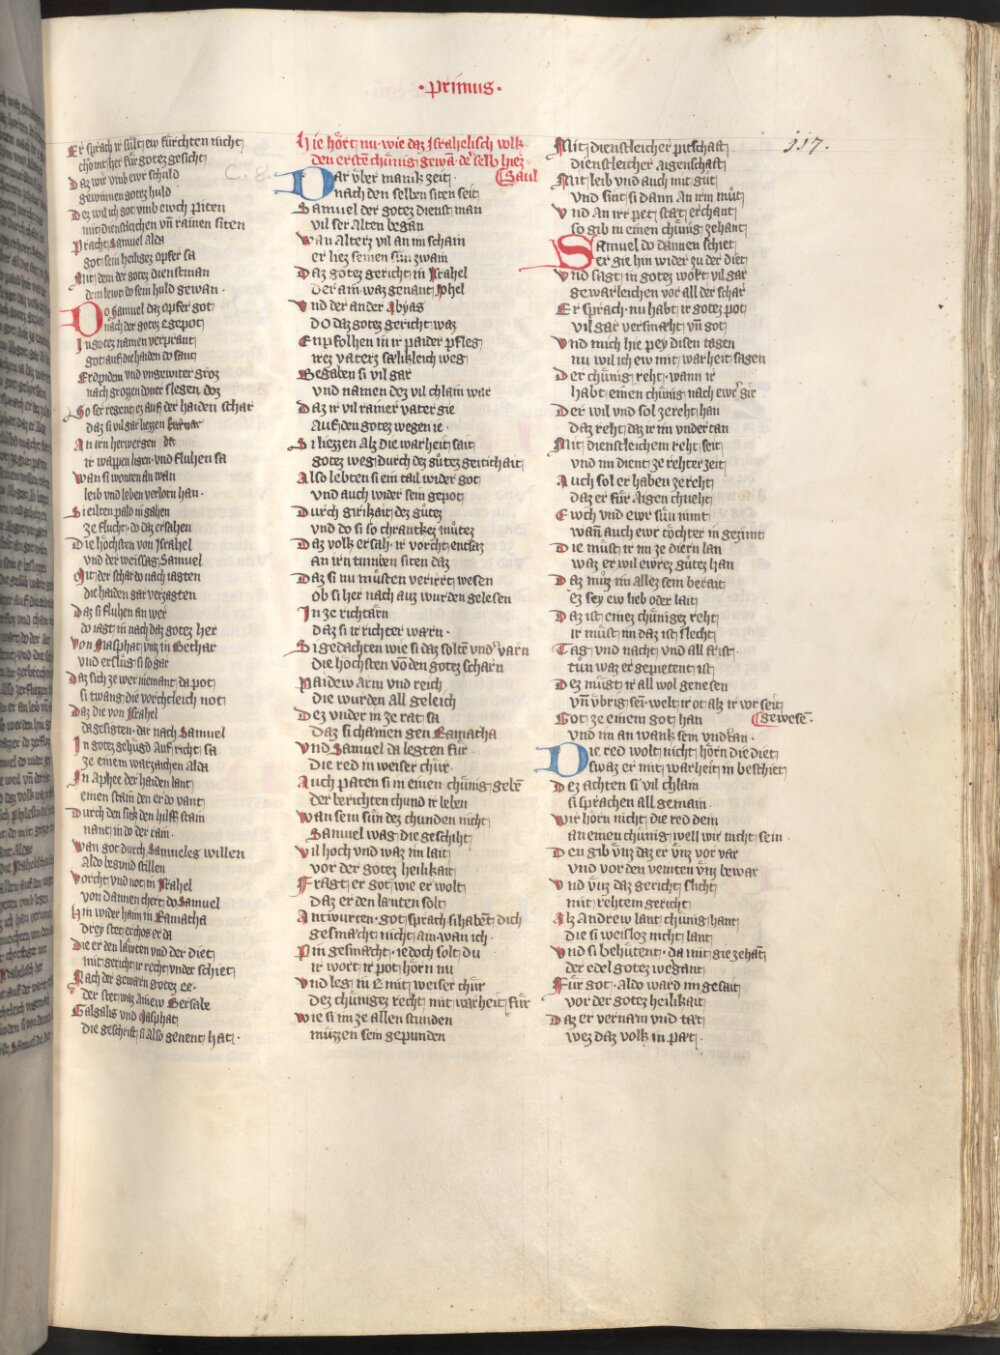 ·primus·
117.
Er sprach ir sült ew fürchten nicht
chomt her für gotez gesicht
Daz wir vmb ewr schuld
C. 8.
gewinnen gotez huld
Dez wil ich got vmb ewch piten
mit dienstleichen vñ rainen siten
Pracht Samuel alda
got sein heiligez opfer sa
Mit dem der gotez dienstman
dem lewt do sein huld gewan·
Do Samuel daz opfer got
nach der gotez e gepot
In gotez namen verprant
got auf die haiden do sant
Erdpidem vnd vngewiter groz
nach grozen doner slegen doz
So ser regent ez auf der haiden schar
daz si vil gar liezzen
An irn herwergen
ir wappen ligen· vnd fluhen sa
Wan si wonten an wan
leib vnd leben verlorn han·
Si eilten pald in gahen
ze flucht· do daz ersahen
Die höchsten von Israhel
vnd der weissag Samuel
Mit der schar do nach iagten
die haiden gar verzagten
Daz si fluhen an wer
do iagt in nach daz gotez her
Von Masphat vntz in Bethar
vnd erslüg si so gar
Daz sich ze wer niemant da pot
si twang die vorchtleich not
Daz die von Israhel
da gesigten· dar nach Samuel
In gotez gehügd auf richt sa
ze einem warzaichen alda
In Aphee der haiden lant
einen stain den er do vant
Durch den sinn den hilff stain
nant in do der rain·
Wan got durch Samuelz willen
Aldo begund stillen
Vorcht vnd not in Israhel
von dannen chert do Samuel
Hin wider haim in Ramatha
drey stet erchos er da
Die er den läwten vnd der diet
mit gericht ir recht vnder schiet
Nach der gewarn gotez ee·
der stet waz ainew Bersabe
Galgalis vnd Masphat
die geschrift si also genent hat·
Hie hört nu· wie daz Israhelisch volk
den erste chünig gewan der selb hiez
Saul
Dar vber manik zeit·
nach den selben siten seit
Samuel der gotez dienst man
vil ser Alten began
Wan Alterz vil an im schain
er liez seinen sün zwain
Daz gotez gericht in Israhel
Der ain waz genant Johel
Vnd der ander Abyas
do daz gotez gericht waz
Enpfolhen in ir paider pfleg
irez vaterz sälikleich weg
Begaben si vil gar
vnd namen dez vil chlain war
Daz ir vil rainer vater gie
Auf den gotez wegen ie·
Si liezzen Alz die warheit sait
gotez weg durch dez gütez geitichait
Also lebten si ein tail wider got
vnd auch wider sein gepot
Durch girikait dez gütez
vnd do si so chrankez mütez
Daz volk ersah· ir vorcht entsaz
an irn tumben siten daz
Daz si nu müsten verirrt wesen
ob si her nach auz wurden gelesen
In ze richtärn
daz si ir richter warn·
Si gedachten wie si daz solten vnder varn
die höchsten von den gotez scharn
Paidew arm vnd reich
die wurden all geleich
Dez vnder in ze rat sa
daz si chämen gen Ramatha
Vnd Samuel da legten für
die red in weiser chür·
Auch paten si in einen chünig gebe͂
der berichten chund ir leben
Wan sein sün dez chunden nicht
Samuel wag die geschiht
Vil hoch vnd waz im lait
vor der gotez heilikait
Fragt er got wie er wolt
daz er den läuten solt
Antwurten· got sprach si habe͂t dich
gesmächt nicht ain· wan ich·
Pin gesmächt· iedoch solt du
ir wort ir pot hörn nu
Vnd leg in e mit weiser chür
dez chünigez recht mit warheit für
Wie si im ze allen stunden
müzzen sein gepunden
Mit dienstleicher pitschaft
dienstleicher aigenschaft
Mit leib vnd auch mit güt
vnd sint si dann an irm müt
Vnd an irr pet stät erchant
so gib in einen chünig zehant
Samuel do dannen schiet
er gie hin wider zu der diet
Vnd sagt in gotez wort vil gar
gewärleichen vor all der schar
Er sprach· nu habt ir gotez pot
vil gar versmächt vñ got
Vnd mich hie pey disen tagen
nu wil ich ew mit warheit sagen
Der chünig reht· wann ir
habt einen chünig nach ewr gir
Der wil vnd sol ze reht han
daz reht daz ir im vndertan
Mit dienstleichem reht seit
vnd im dient ze rehter zeit
Auch sol er haben ze reht
daz er für aigen chneht
Ewch vnd ewr sün nimt
wan͂ auch ewr töchter in gezimt
Die müst ir im ze diern lan
waz er wil ewrez gütez han
Daz müz im allez sein berait
ez sey ew lieb oder lait
Daz ist einez chünigez reht
ir müst im daz ist slecht
Tag vnd nacht vnd all frist·
tün waz er gepietent ist
Dez mügt ir all wol genesen
vñ vbrig sein· welt ir ot alz ir vor seit
Got ze einem got han
gewese͂·
vnd im an wank sein vndtan·
Die red wolt nicht hörn die diet
swaz er mit warheit in beschiet
Dez achten si vil chlain
si sprachen all gemain·
Wir hörn nicht die red dein
an einen chünig well wir nicht sein·
Den gib vnz daz er vnz vor var
vnd vor den veinten vnz bewar
Vnd vnz daz gericht slicht
mit rehtem gericht
Alz Andrew lant chünig hant
die si weisloz nicht lant
Vnd si behütent· da mit gie zehant
der edel gotez wegant
Für got· aldo ward im gesait
vor der gotez heilikait
Daz er vernäm vnd tät
wez daz volk in pät·